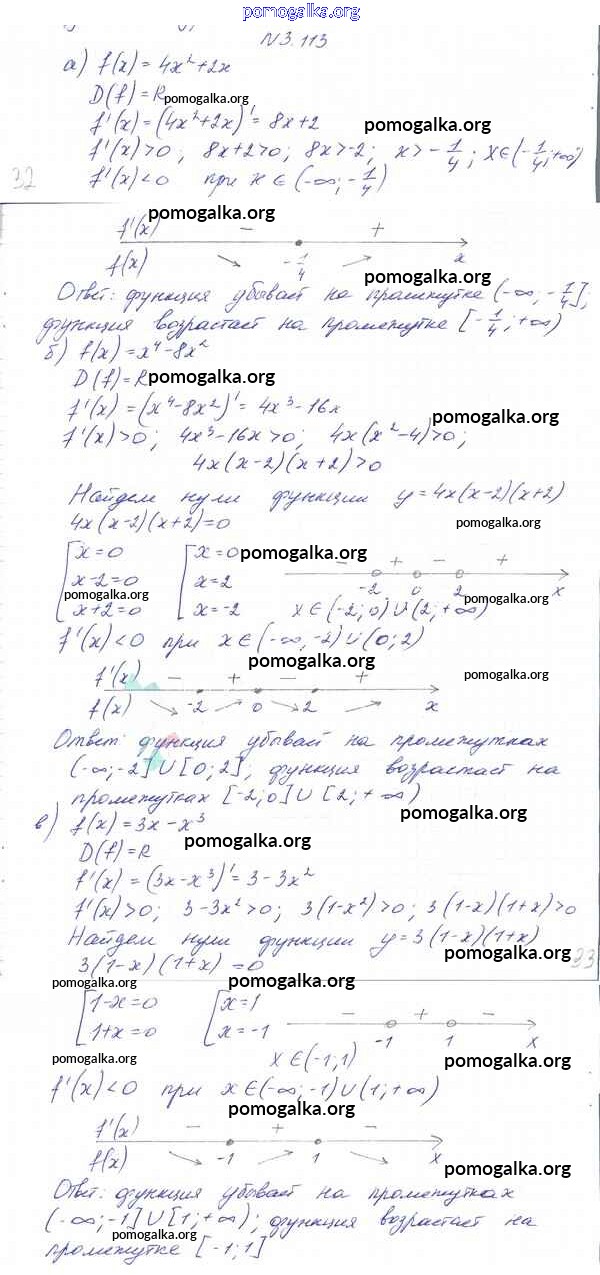 pomogalka.org
N 3.113
а) f(x) = 4x²+2x
D(f) = R pomogalka.org
f'(x) = (4x²+2x)' = 8x+2 pomogalka.org
f'(x)>0; 8x+2>0; 8x>-2; x>-1/4; x∈(-1/4;+∞)
32 f'(x)<0 при x∈(-∞;-1/4)
pomogalka.org
f'(x) - +
f(x) -1/4 x
pomogalka.org
Ответ: функция убывает на промежутке (-∞,-1/4];
функция возрастает на промежутке [-1/4;+∞)
б) f(x)=x⁴-8x²
D(f)=R pomogalka.org
f'(x) = (x⁴-8x²)' = 4x³-16x
pomogalka.org
f'(x)>0; 4x³-16x>0; 4x(x²-4)>0;
4x(x-2)(x+2)>0
Найдем нули функции y=4x(x-2)(x+2)
4x(x-2)(x+2)=0 pomogalka.org
[x=0 [x=0 pomogalka.org - + - +
x-2=0 x=2 -2 0 2 x
pomogalka.org pomogalka.org
x+2=0 x=-2 x∈(-2;0)∪(2;+∞)
f'(x)<0 при x∈(-∞,-2)∪(0;2)
pomogalka.org
f'(x) - + - + pomogalka.org
f(x) -2 0 2 x
Ответ: функция убывает на промежутках
(-∞;-2]∪[0;2], функция возрастает на
промежутках [-2;0]∪[2;+∞)
pomogalka.org
в) f(x)=3x-x³
pomogalka.org
D(f)=R
f'(x) = (3x-x³)' = 3-3x²
f'(x)>0; 3-3x²>0; 3(1-x²)>0; 3(1-x)(1+x)>0
Найдем нули функции y=3(1-x)(1+x)
3(1-x)(1+x)=0 33
pomogalka.org pomogalka.org
[1-x=0 [x=1 - + -
1+x=0 x=-1 -1 1 x
pomogalka.org x∈(-1;1) pomogalka.org
f'(x)<0 при x∈(-∞,-1)∪(1;+∞)
pomogalka.org
f'(x) - + -
f(x) -1 1 x
pomogalka.org
Ответ: функция убывает на промежутках
(-∞;-1]∪[1;+∞); функция возрастает на
pomogalka.org
промежутке [-1;1]